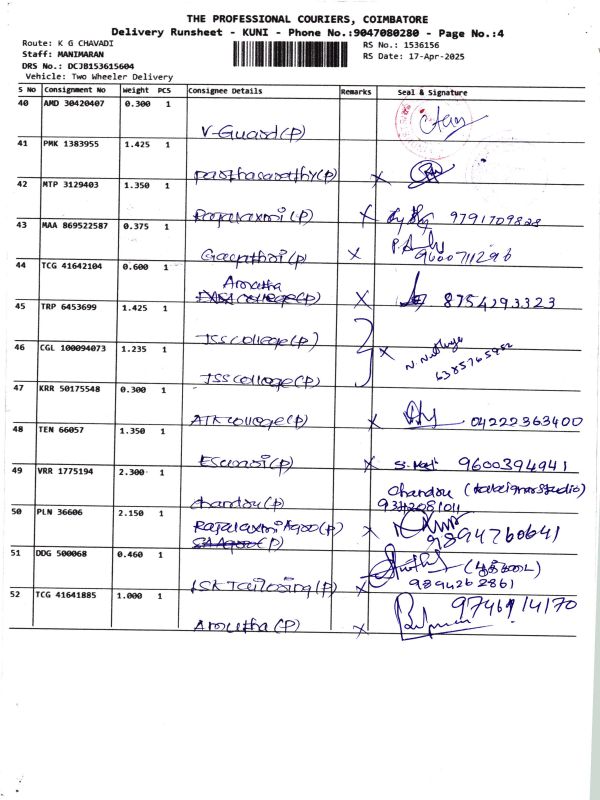 THE PROFESSIONAL COURIERS, COIMBATORE
Delivery Runsheet - KUNI - Phone No.:9047080280 - Page No.:4
Route: K G CHAVADI
RS No.: 1536156
Staff: MANIMARAN
RS Date: 17-Apr-2025
DRS No.: DCJB153615604
Vehicle: Two Wheeler Delivery
S No Consignment No Weight PCS Consignee Details Remarks Seal & Signature
40 AMD 30420407 0.300 1
V-Guard (P)
41 PMK 1383955 1.425 1
Parthasarathy (P) X
42 MTP 3129403 1.350 1
Rajalaxmi (P) X 9791709828
43 MAA 869522587 0.375 1
Gayathri (P) X 9600711296
44 TCG 41642104 0.600 1
Amrutha
college (P) X 8754293323
45 TRP 6453699 1.425 1
JSS college (P)
X
46 CGL 100094073 1.235 1
6385765952
JSS college (P)
47 KRR 50175548 0.300 1
ATK college (P) X 04222363400
48 TEN 66057 1.350 1
(P) X 9600394941
49 VRR 1775194 2.300 1
Chandru
Chandru (P)
50 PLN 36606 2.150 1
Rajalaxmi Agro (P) X 9894760641
51 DDG 500068 0.460 1
LSK Tailoring (P) X 9894262861
52 TCG 41641885 1.000 1
Amrutha (P) X